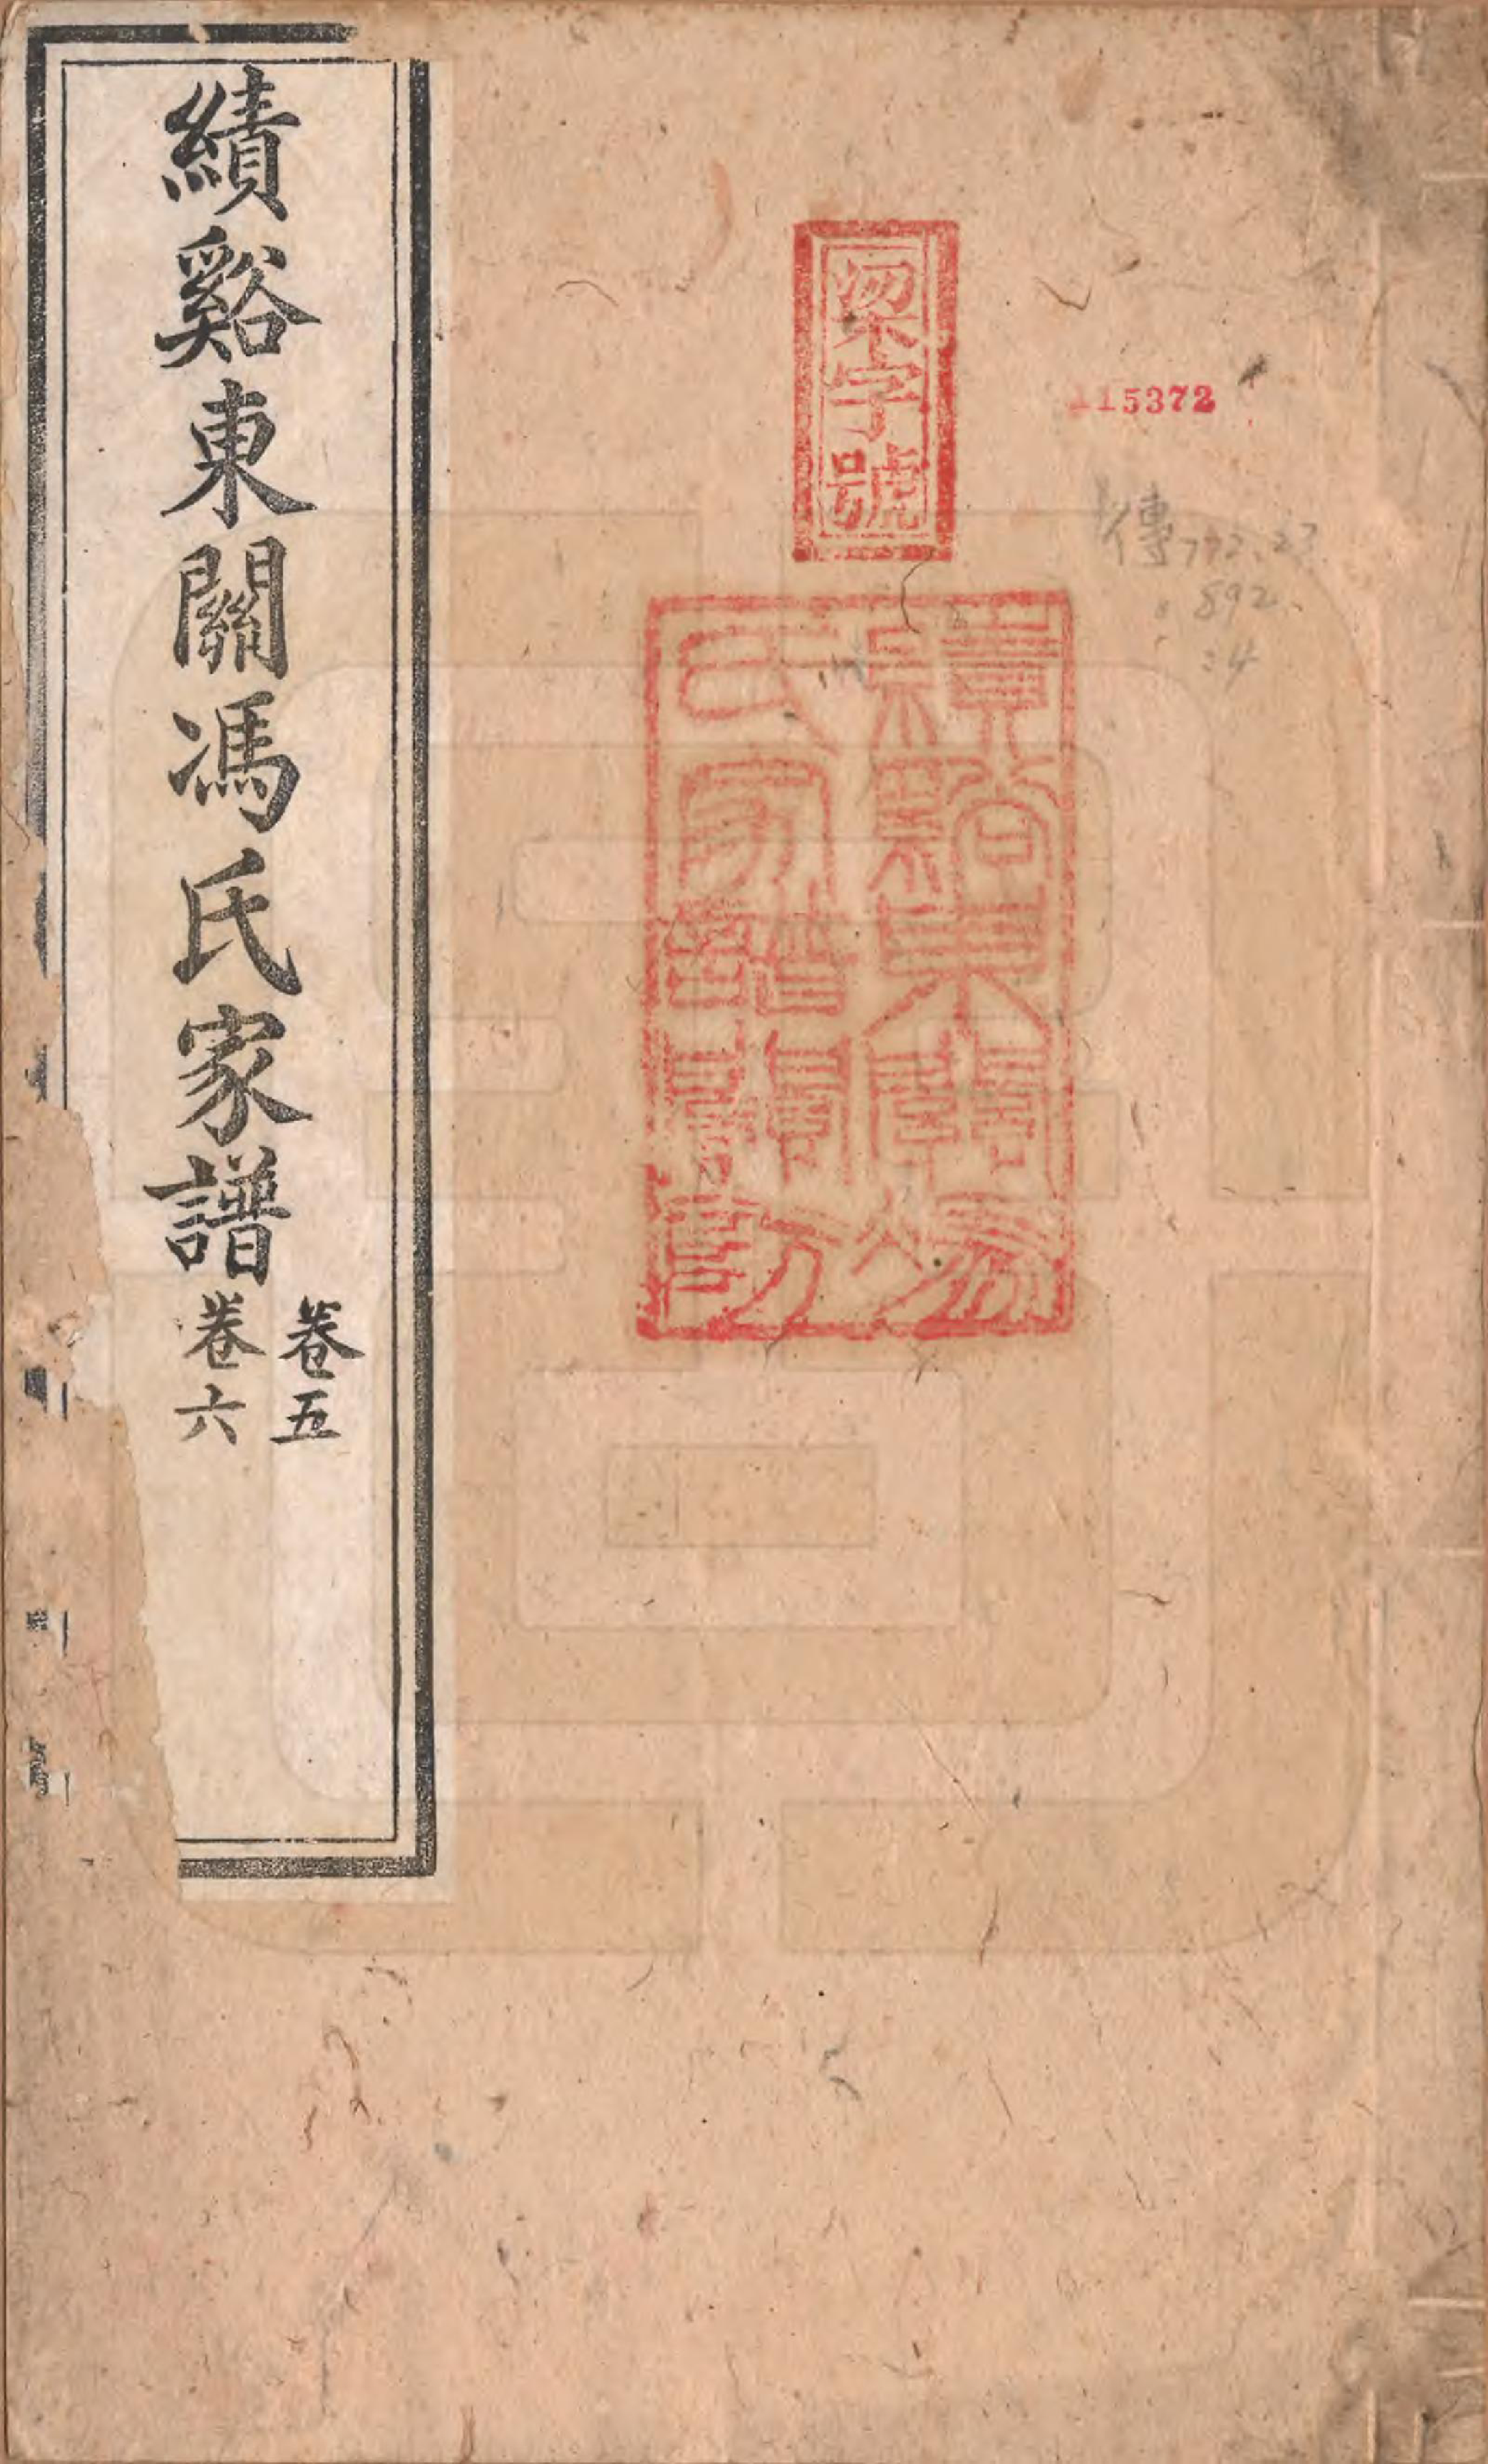 績谿東關馮氏家譜
卷五
卷六
梁字號
115372
傳772.27
892
:4
績谿東關馮
氏家譜